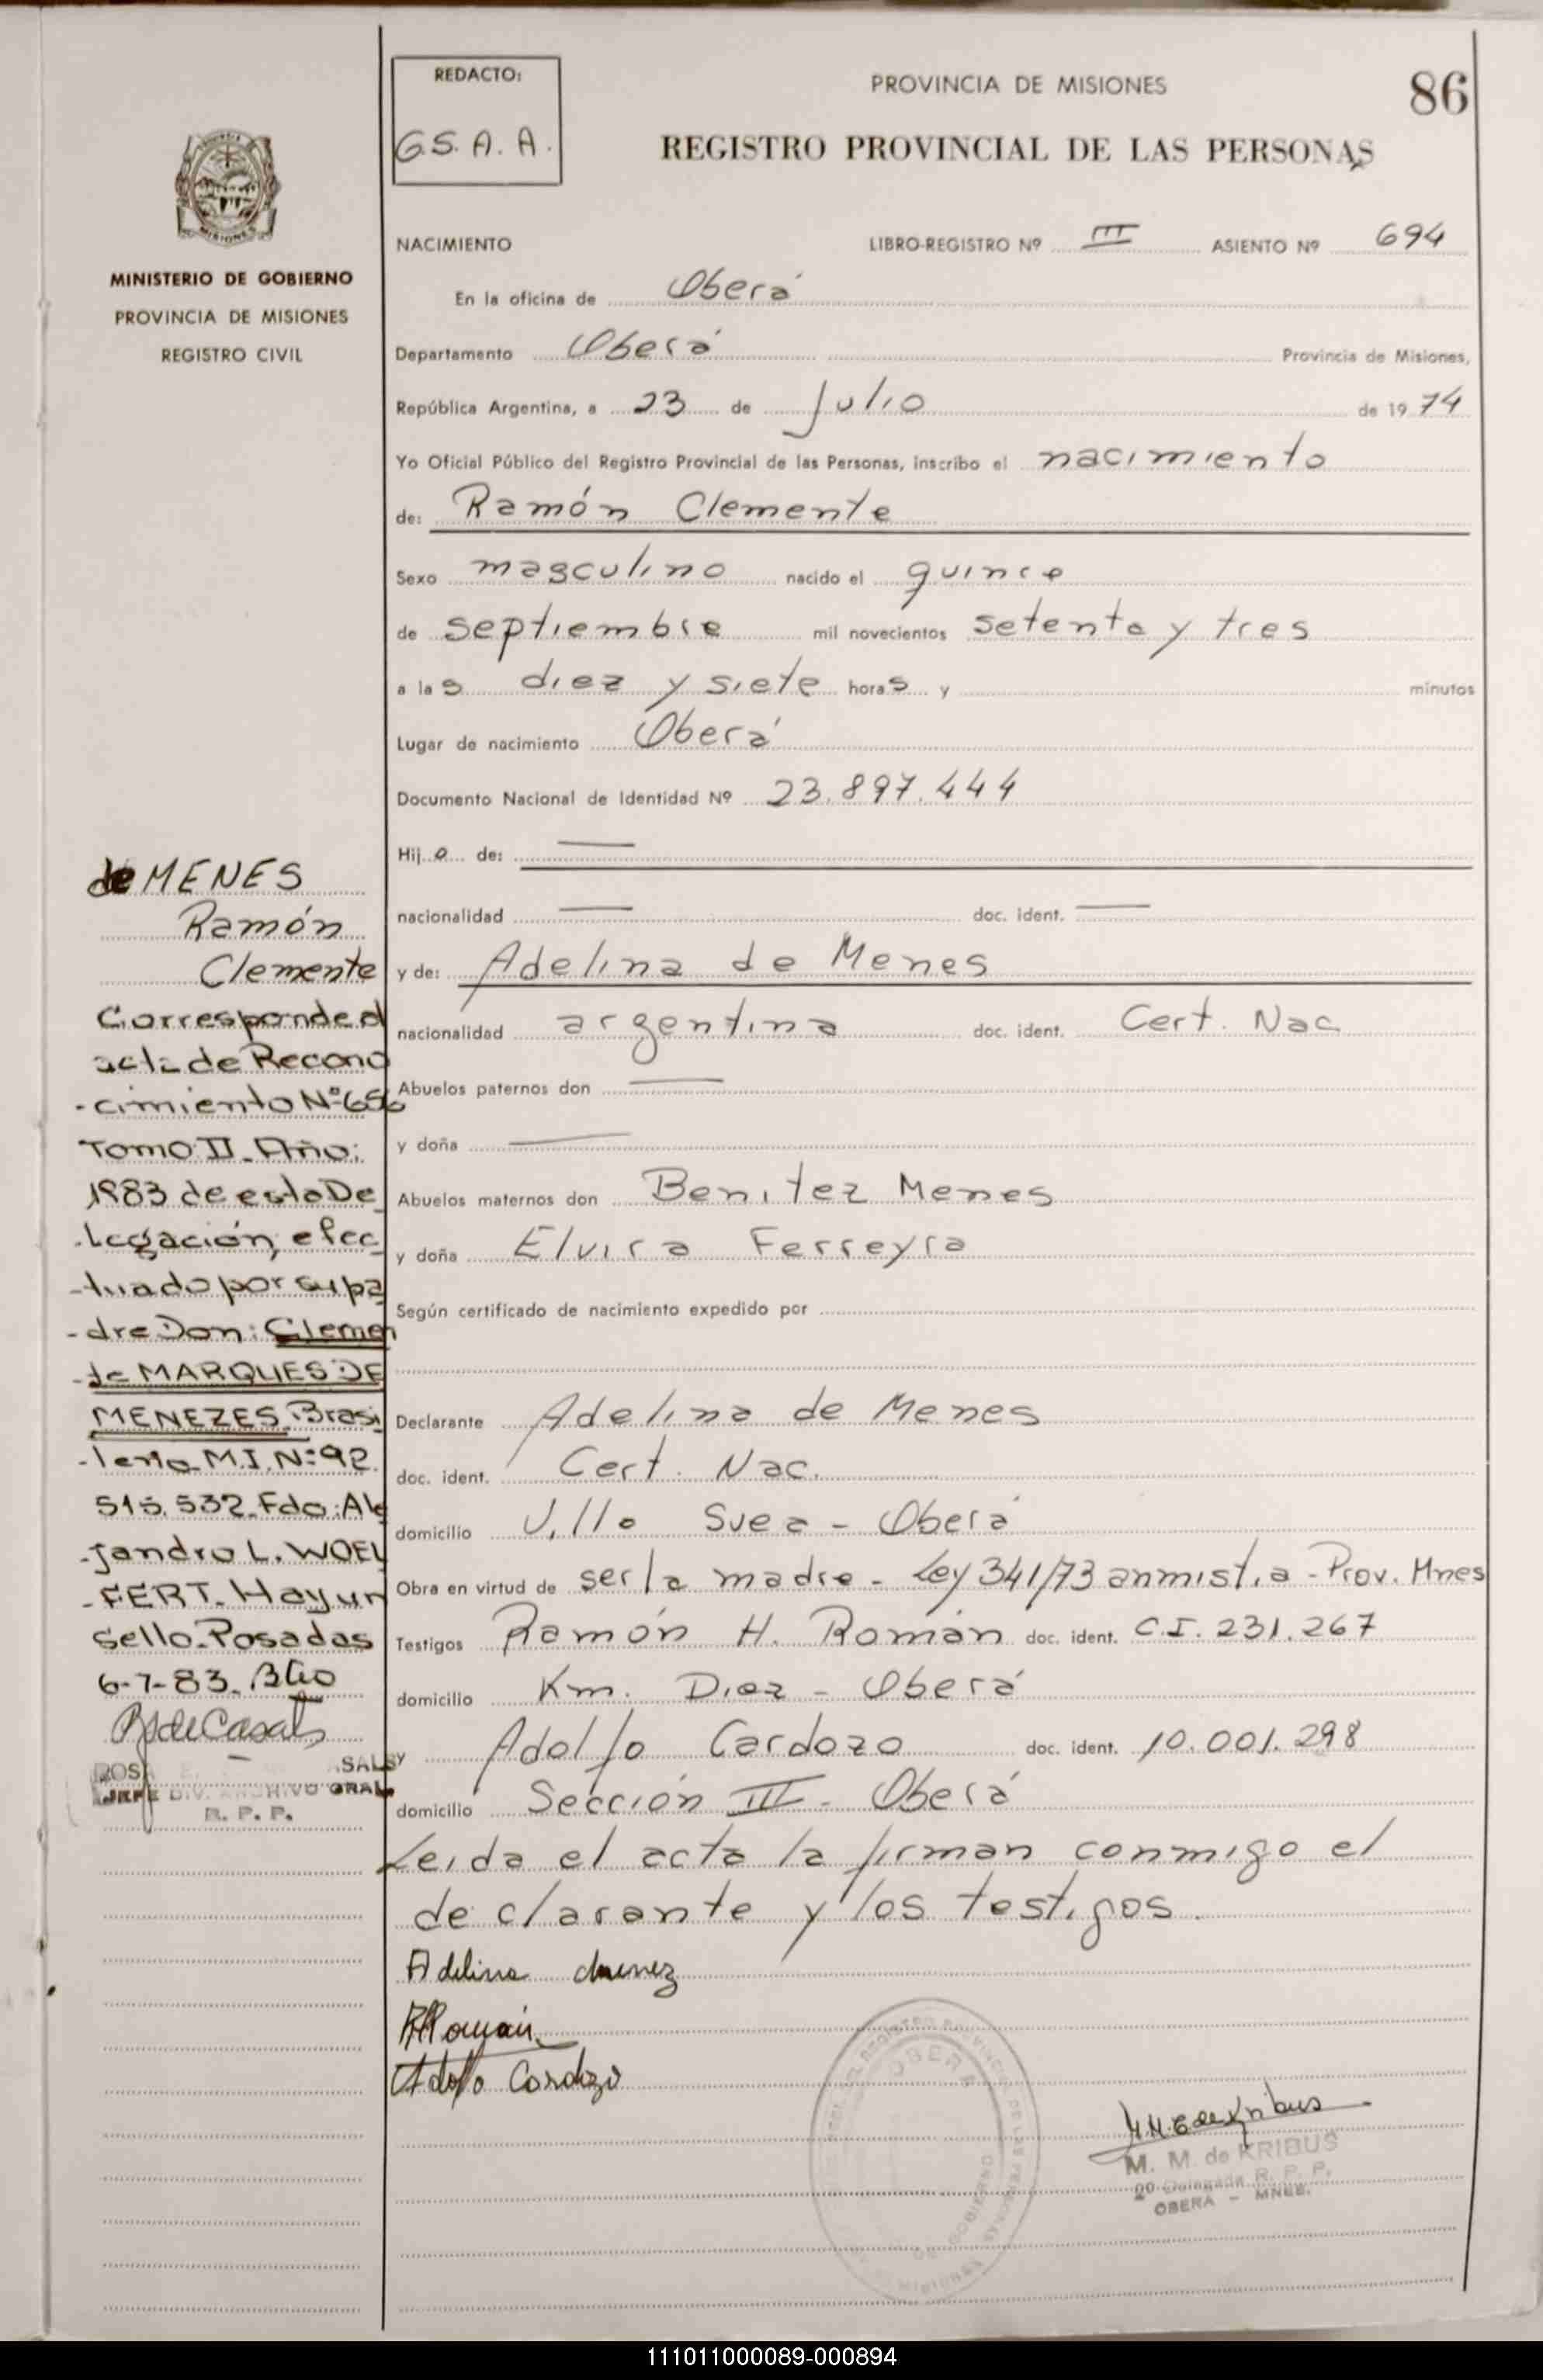 REDACTO:
G.S. A. A.
PROVINCIA DE MISIONES
86
REGISTRO PROVINCIAL DE LAS PERSONAS
MINISTERIO DE GOBIERNO
PROVINCIA DE MISIONES
REGISTRO CIVIL
NACIMIENTO LIBRO-REGISTRO Nº III ASIENTO Nº 694
En la oficina de Oberá
Departamento Oberá Provincia de Misiones,
República Argentina, a 23 de Julio de 19 74
Yo Oficial Público del Registro Provincial de las Personas, inscribo el nacimiento
de: Ramón Clemente
Sexo masculino nacido el quince
de septiembre mil novecientos setenta y tres
a las diez y siete horas y minutos
Lugar de nacimiento Oberá
Documento Nacional de Identidad Nº 23.897.444
Hijo de: —
nacionalidad — doc. ident. —
y de: Adelina de Menes
nacionalidad argentina doc. ident. Cert. Nac
Abuelos paternos don —
y doña —
Abuelos maternos don Benitez Menes
y doña Elvira Ferreyra
Según certificado de nacimiento expedido por
Declarante Adelina de Menes
doc. ident. Cert. Nac.
domicilio Villa Svea - Oberá
Obra en virtud de ser la madre - Ley 341/73 anmistia - Prov. Mnes
Testigos Ramón H. Román doc. ident. C.I. 231.267
domicilio Km. Diez - Oberá
y Adolfo Cardozo doc. ident. 10.001.298
domicilio Sección III - Oberá
Leida el acta la firman conmigo el
declarante y los testigos.
Adelina
RRomán
Adolfo Cardozo
de MENES
Ramón
Clemente
Corresponde al
acta de Recono
-cimiento Nº 656
Tomo II. Año:
1983 de esta De
-legación, efec
-tuado por su pa
-dre Don: Clemen
-te MARQUES DE
MENEZES. Brasi
-leño M.I. Nº 92.
515.532. Fdo: Ale
-jandro L. WOEL
-FERT. Hay un
sello. Posadas
6-7-83.
JEFE DIV. ARCHIVO GRAL
R. P. P.
OBERA
M. M. de KRIBUS
OBERA - MNES.
111011000089-000894